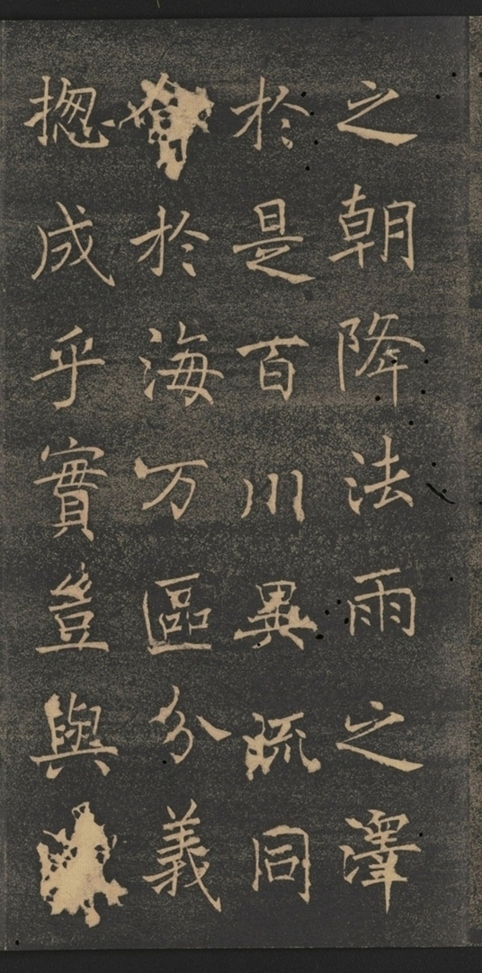 之朝降法雨之澤
於是百川異流同
於海万區分義
揔成乎實豈與